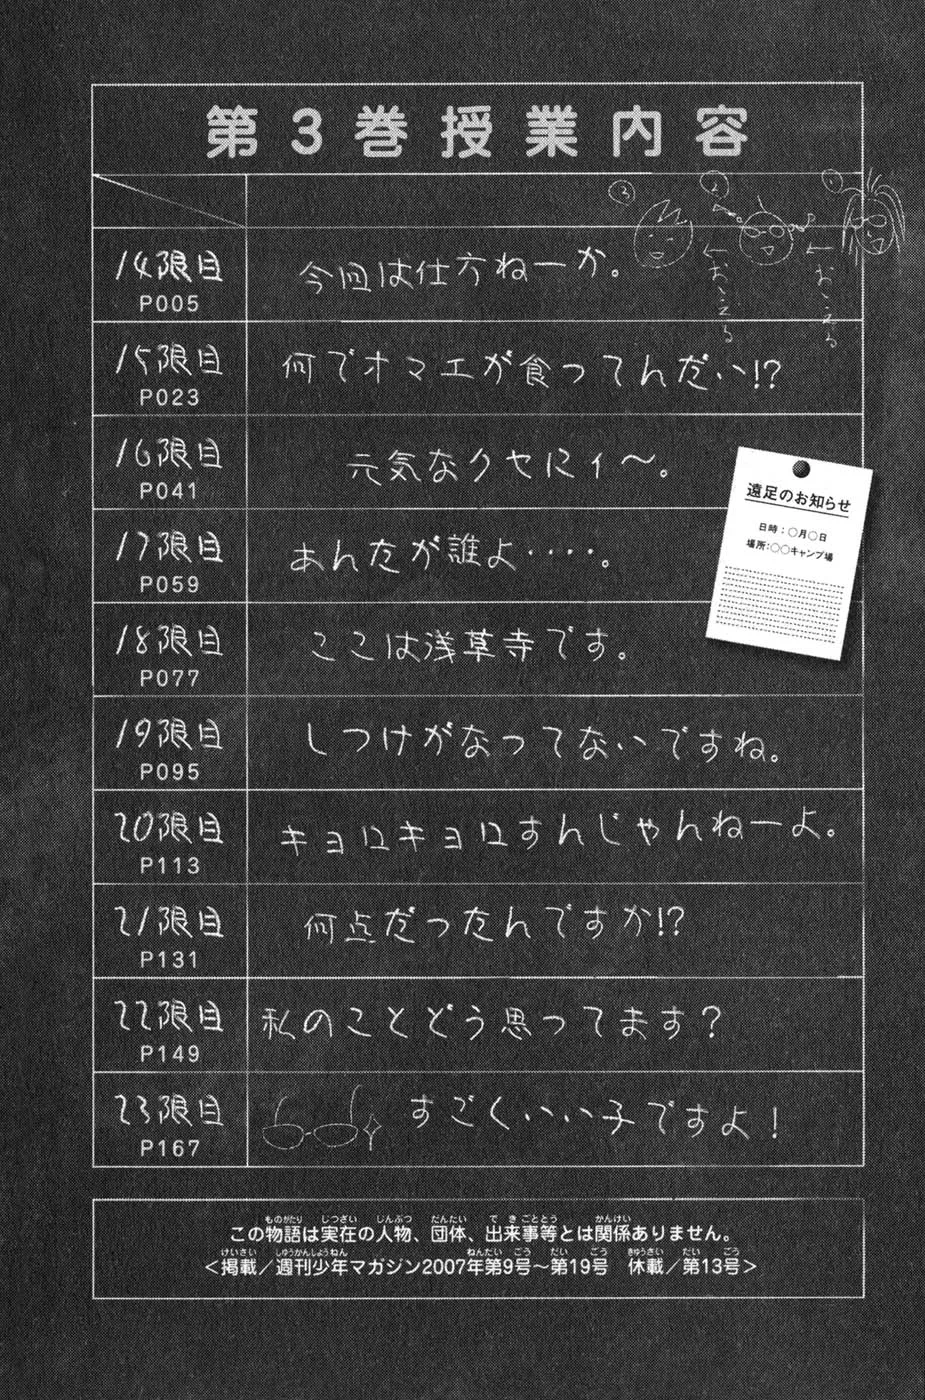 第3巻授業内容
③ ② ①
← おこえる
← おこえる
14限目
P005
今回は仕方ねーか。
15限目
P023
何でオマエが食ってんだい!?
16限目
P041
元気なクセにィ～。
17限目
P059
あんたが誰よ‥‥。
18限目
P077
ここは浅草寺です。
19限目
P095
しつけがなってないですね。
20限目
P113
キョロキョロすんじゃんねーよ。
21限目
P131
何点だったんですか!?
22限目
P149
私のことどう思ってます？
23限目
P167
すごくいい子ですよ！
遠足のお知らせ
日時：○月○日
場所：○○キャンプ場
この物語は実在の人物、団体、出来事等とは関係ありません。
＜掲載／週刊少年マガジン2007年第9号～第19号　休載／第13号＞